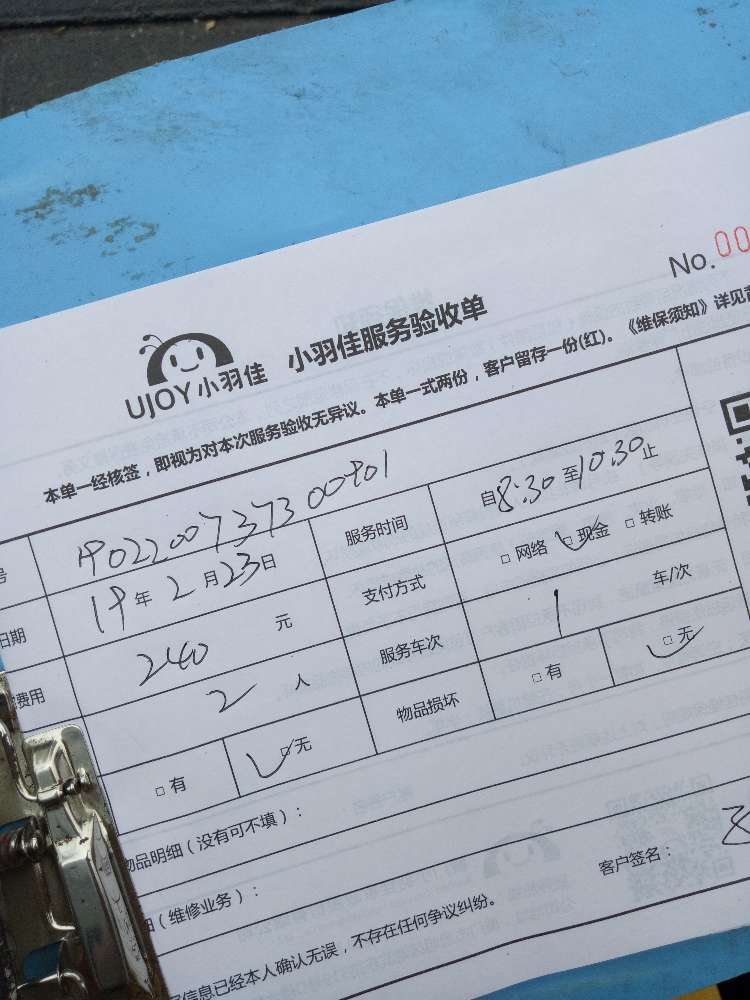 No.00
UJOY小羽佳 小羽佳服务验收单
本单一经核签，即视为对本次服务验收无异议。本单一式两份，客户留存一份(红)。《维保须知》详见背
号 1902200737300901 服务时间 自8:30至10:30止
日期 19年2月23日 支付方式 □网络 □现金 □转账
费用 240元 服务车次 1 车/次
2人 物品损坏 □有 □无
□有 □无
物品明细（没有可不填）：
细（维修业务）： 客户签名：
信息已经本人确认无误，不存在任何争议纠纷。